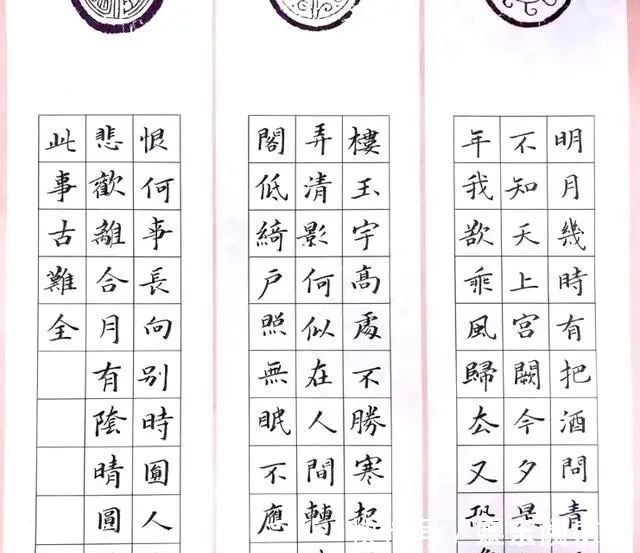 明月幾時有把酒問青
不知天上宮闕今夕是
年我欲乘風歸去又恐
樓玉宇高處不勝寒起
弄清影何似在人間轉
閣低綺戶照無眠不應
恨何事長向別時圓人
悲歡離合月有陰晴圓
此事古難全